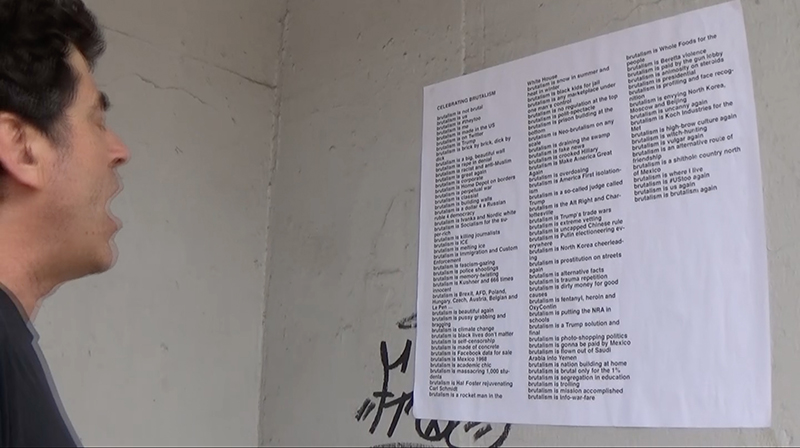 CELEBRATING BRUTALISM
brutalism is not brutal
brutalism is us
brutalism is #the
brutalism is me
brutalism is made in the US
brutalism is on Twitter
brutalism is Trump
brutalism is brick by brick, dick by
dick
brutalism is a big, beautiful wall
brutalism is rape in denial
brutalism is racist and anti-Muslim
brutalism is great again
brutalism is corporate
brutalism is Home Depot on borders
brutalism is perpetual war
brutalism is classist
brutalism is building walls
brutalism is a dollar 4 a Russian
ruble 4 democracy
brutalism is Ivanka and Nordic white
brutalism is Socialism for the su-
per-rich
brutalism is killing journalists
brutalism is ICE
brutalism is melting ice
brutalism is Immigration and Custom
Enforcement
brutalism is fascism-gazing
brutalism is police shootings
brutalism is memory-twisting
brutalism is Kushner and 666 times
innocent
brutalism is Brexit, AFD, Poland,
Hungary, Czech, Austria, Belgian and
La Pen
brutalism is beautiful again
brutalism is pussy grabbing and
bragging
brutalism is climate change
brutalism is black lives don't matter
brutalism is self-censorship
brutalism is made of concrete
brutalism is Facebook data for sale
brutalism is Mexico 1968
brutalism is academic chic
brutalism is massacring 1,000 stu-
dents
brutalism is Hal Foster rejuvenating
Carl Schmidt
brutalism is a rocket man in the
White House
brutalism is snow in summer and
heat in winter
brutalism is black kids for jail
brutalism is any marketplace under
one man's control
brutalism is no regulation at the top
brutalism is petit-spectacle
brutalism is prison building at the
bottom
brutalism is Neo-brutalism on any
scale
brutalism is draining the swamp
brutalism is fake news
brutalism is crooked Hillary
brutalism is Make America Great
Again
brutalism is overdosing
brutalism is America First isolation-
ism
brutalism is a so-called judge called
Trump
brutalism is the Alt Right and Char-
lottesville
brutalism is Trump's trade wars
brutalism is extreme vetting
brutalism is uncapped Chinese rule
brutalism is Putin electioneering ev-
erywhere
brutalism is North Korea cheerlead-
ing
brutalism is prostitution on streets
again
brutalism is alternative facts
brutalism is trauma repetition
brutalism is dirty money for good
causes
brutalism is fentanyl, heroin and
OxyContin
brutalism is putting the NRA in
schools
brutalism is a Trump solution and
final
brutalism is photo-shopping politics
brutalism is gonna be paid by Mexico
brutalism is flown out of Saudi
Arabia into Yemen
brutalism is nation building at home
brutalism is brutal only for the 1%
brutalism is segregation in education
brutalism is trolling
brutalism is mission accomplished
brutalism is info-war-fare
brutalism is Whole Foods for the
people
brutalism is Beretta violence
brutalism is paid by the gun lobby
brutalism is animosity on steroids
brutalism is presidential
brutalism is profiling and face recog-
nition
brutalism is envying North Korea,
Moscow and Beijing
brutalism is uncanny again
brutalism is Koch Industries for the
Met
brutalism is high-brow culture again
brutalism is witch-hunting
brutalism is vulgar again
brutalism is an alternative route of
friendship
brutalism is a shithole country north
of Mexico
brutalism is where I live
brutalism is #UStoo again
brutalism is us again
brutalism is brutalism again